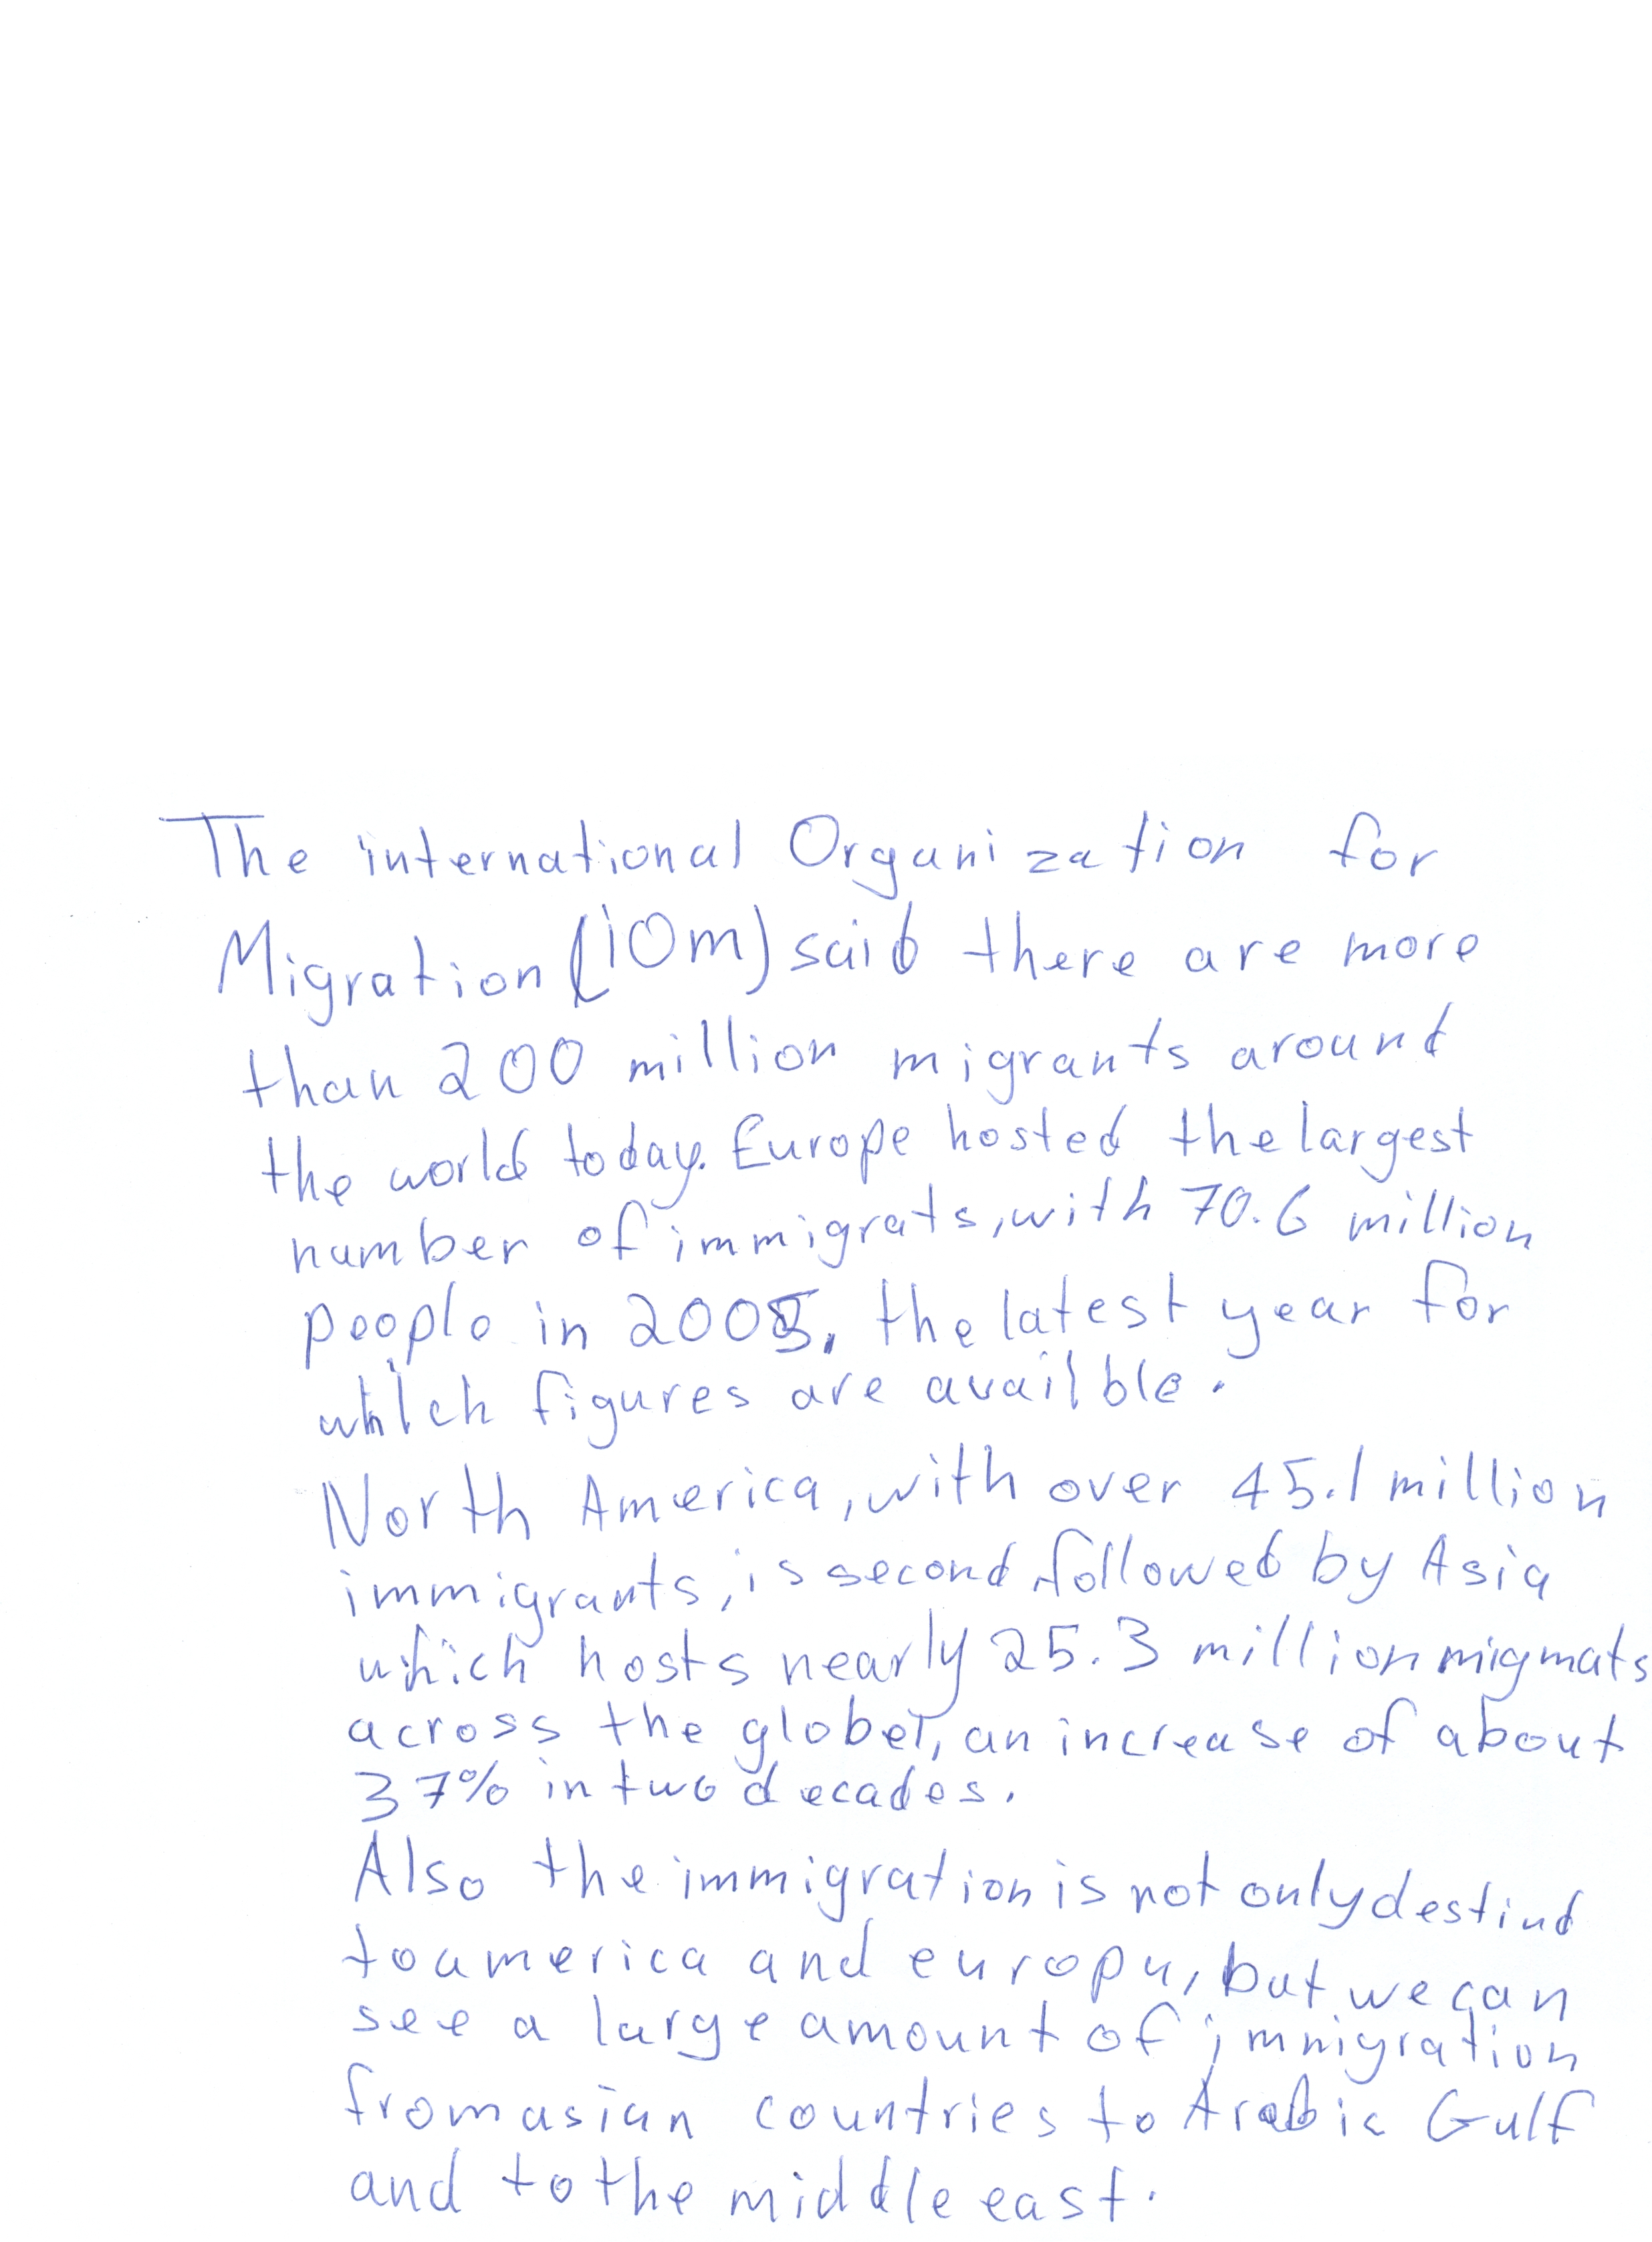 The international Organization for
Migration (iOm) said there are more
than 200 million migrants around
the world today. Europe hosted the largest
number of immigrats, with 70.6 million
people in 2005, the latest year for
which figures are availble.
North America, with over 45.1 million
immigrants, is second, followed by Asia
which hosts nearly 25.3 million migmats
across the globeT, an increase of about
37% in two decades.
Also the immigration is not only destind
to america and europu, but we can
see a large amount of immigration
from asian countries to Arabic Gulf
and to the middle east.